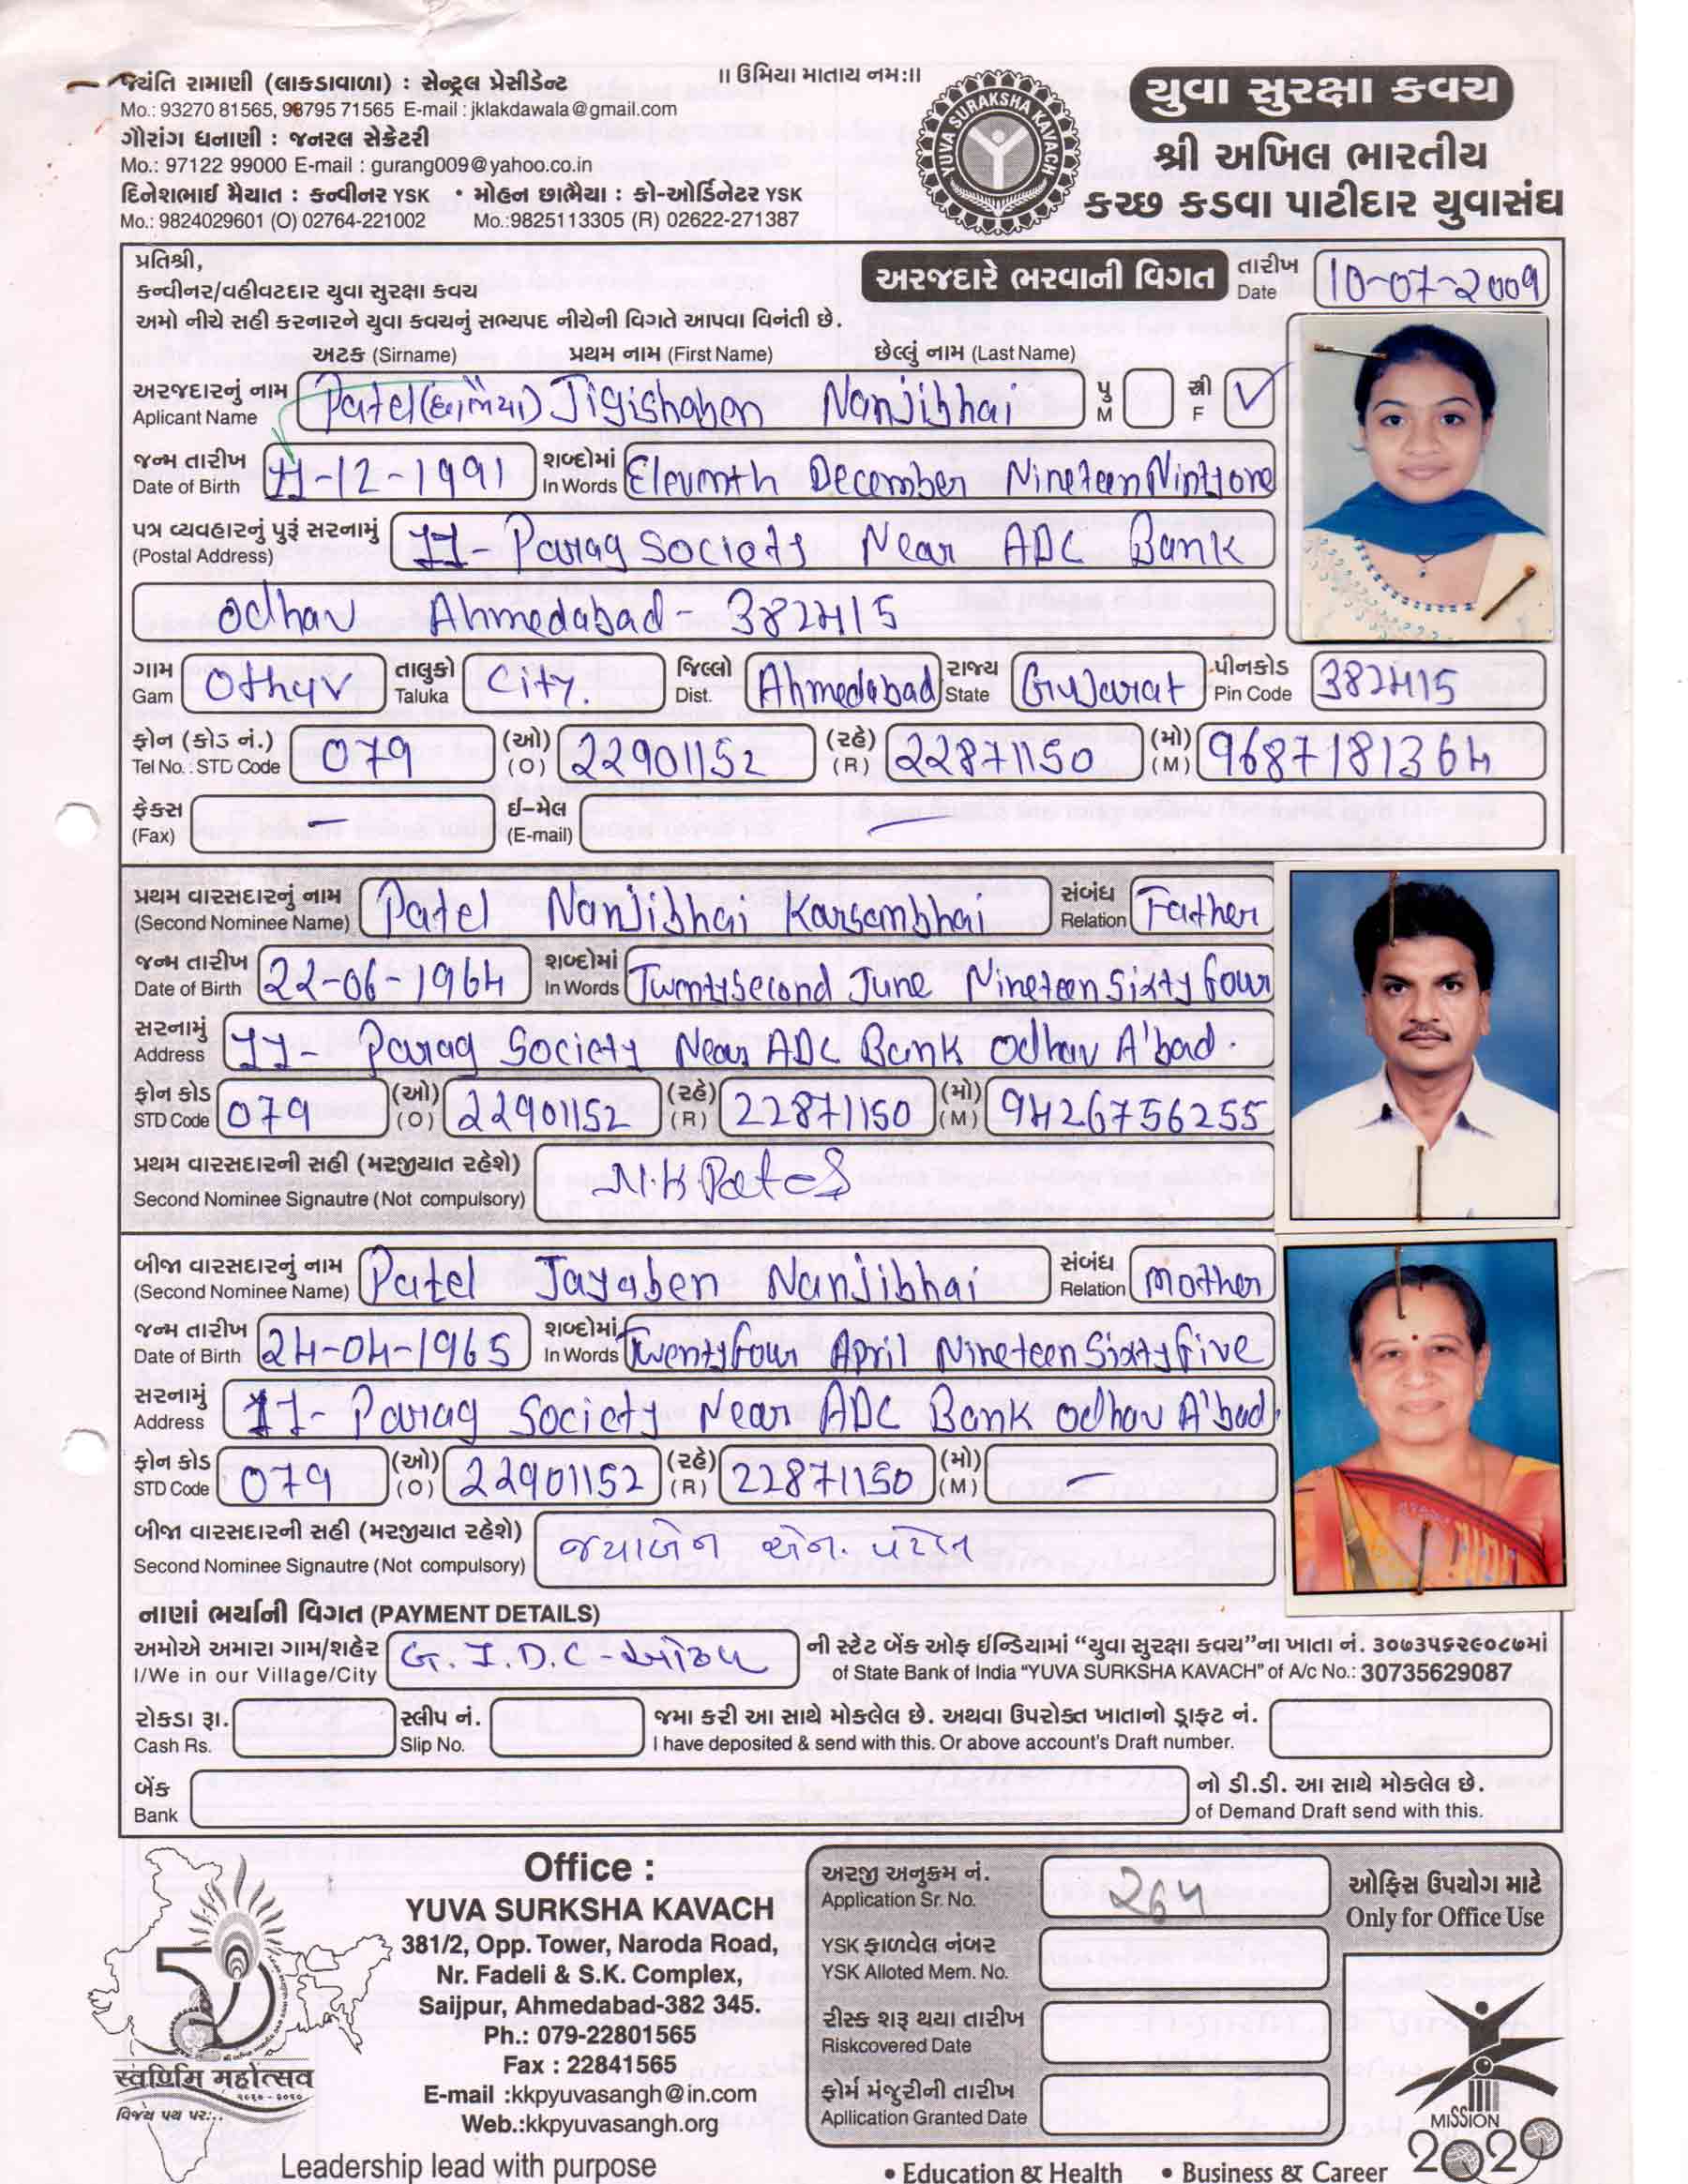 ॥ ઉમિયા માતાય નમઃ॥
જયંતિ રામાણી (લાકડાવાળા) : સેન્ટ્રલ પ્રેસીડેન્ટ
Mo.: 93270 81565, 98795 71565 E-mail : jklakdawala@gmail.com
ગૌરાંગ ધનાણી : જનરલ સેક્રેટરી
Mo.: 97122 99000 E-mail : gurang009@yahoo.co.in
દિનેશભાઈ મૈયાત : કન્વીનર YSK • મોહન છાભૈયા : કો-ઓર્ડિનેટર YSK
Mo.: 9824029601 (O) 02764-221002 Mo.:9825113305 (R) 02622-271387
YUVA SURAKSHA KAVACH
યુવા સુરક્ષા કવચ
શ્રી અખિલ ભારતીય
કચ્છ કડવા પાટીદાર યુવાસંઘ
પ્રતિશ્રી,
કન્વીનર/વહીવટદાર યુવા સુરક્ષા કવચ
અમો નીચે સહી કરનારને યુવા કવચનું સભ્યપદ નીચેની વિગતે આપવા વિનંતી છે.
અરજદારે ભરવાની વિગત
તારીખ Date 10-07-2009
અટક (Sirname) પ્રથમ નામ (First Name) છેલ્લું નામ (Last Name)
અરજદારનું નામ Aplicant Name Patel (છાભૈયા) Jigishaben Nanjibhai પુ M સ્ત્રી F ✓
જન્મ તારીખ Date of Birth 11-12-1991 શબ્દોમાં In Words Elevnth December Nineteen Nintyone
પત્ર વ્યવહારનું પુરૂં સરનામું (Postal Address) 11- Parag Society Near ADC Bank
Odhav Ahmedabad - 382415
ગામ Gam Othav તાલુકો Taluka City. જિલ્લો Dist. Ahmedabad રાજ્ય State Gujarat પીનકોડ Pin Code 382415
ફોન (કોડ નં.) Tel No. : STD Code 079 (ઓ) (O) 22901152 (રહે) (R) 22871150 (મો) (M) 9687181364
ફેક્સ (Fax) – ઈ-મેલ (E-mail) –
પ્રથમ વારસદારનું નામ (Second Nominee Name) Patel Nanjibhai Karsanbhai સંબંધ Relation Father
જન્મ તારીખ Date of Birth 22-06-1964 શબ્દોમાં In Words TwentySecond June Nineteen Sixty four
સરનામું Address 11- Parag Society Near ADC Bank Odhav A'bad.
ફોન કોડ STD Code 079 (ઓ) (O) 22901152 (રહે) (R) 22871150 (મો) (M) 9426756255
પ્રથમ વારસદારની સહી (મરજીયાત રહેશે) Second Nominee Signautre (Not compulsory) N.K.Patel
બીજા વારસદારનું નામ (Second Nominee Name) Patel Jayaben Nanjibhai સંબંધ Relation Mother
જન્મ તારીખ Date of Birth 24-04-1965 શબ્દોમાં In Words Twentyfour April Nineteen Sixtyfive
સરનામું Address 11- Parag Society Near ADC Bank Odhav A'bad.
ફોન કોડ STD Code 079 (ઓ) (O) 22901152 (રહે) (R) 22871150 (મો) (M) –
બીજા વારસદારની સહી (મરજીયાત રહેશે) Second Nominee Signautre (Not compulsory) જયાબેન એન. પટેલ
નાણાં ભર્યાની વિગત (PAYMENT DETAILS)
અમોએ અમારા ગામ/શહેર G.I.D.C - ઓઢવ ની સ્ટેટ બેંક ઓફ ઈન્ડિયામાં “યુવા સુરક્ષા કવચ”ના ખાતા નં. ૩૦૭૩૫૬૨૯૦૮૭માં
I/We in our Village/City of State Bank of India “YUVA SURKSHA KAVACH” of A/c No.: 30735629087
રોકડા રૂા. સ્લીપ નં. જમા કરી આ સાથે મોકલેલ છે. અથવા ઉપરોક્ત ખાતાનો ડ્રાફ્ટ નં.
Cash Rs. Slip No. I have deposited & send with this. Or above account's Draft number.
બેંક નો ડી.ડી. આ સાથે મોકલેલ છે.
Bank of Demand Draft send with this.
स्वर्णिम महोत्सव
૨૦૧૦ - ૨૦૨૦
વિજય પથ પર...
Office :
YUVA SURKSHA KAVACH
381/2, Opp. Tower, Naroda Road,
Nr. Fadeli & S.K. Complex,
Saijpur, Ahmedabad-382 345.
Ph.: 079-22801565
Fax : 22841565
E-mail :kkpyuvasangh@in.com
Web.:kkpyuvasangh.org
અરજી અનુક્રમ નં. Application Sr. No. 264
ઓફિસ ઉપયોગ માટે
Only for Office Use
YSK ફાળવેલ નંબર
YSK Alloted Mem. No.
રીસ્ક શરૂ થયા તારીખ
Riskcovered Date
ફોર્મ મંજુરીની તારીખ
Apllication Granted Date
MISSION
2020
Leadership lead with purpose • Education & Health • Business & Career